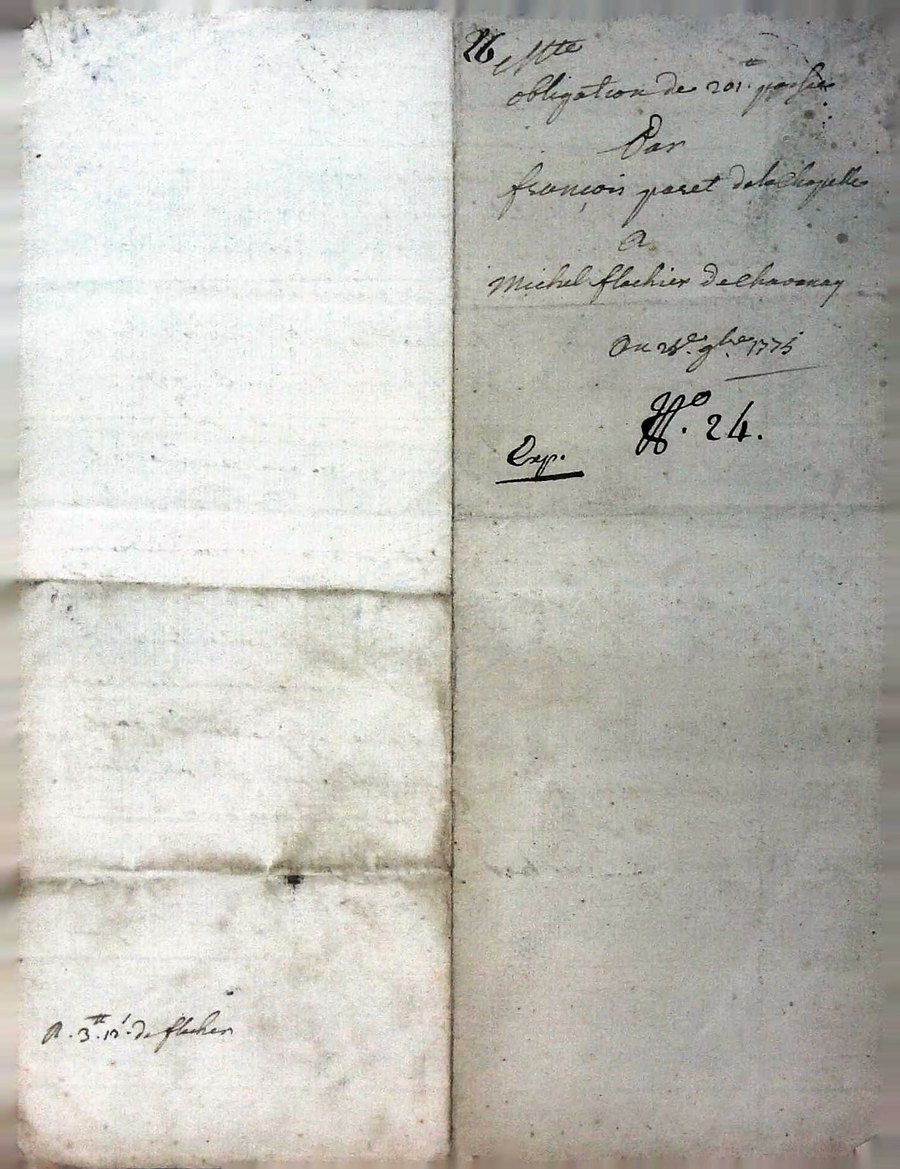 26
obligation de 201ᵗᵗ passée
Par
françois paret delachapelle
a
Michel flachier de chavanay
Du 25e 9bre 1775
N.º 24.
Exp.
R. 3ᵗᵗ. 12ˢ. de flachier